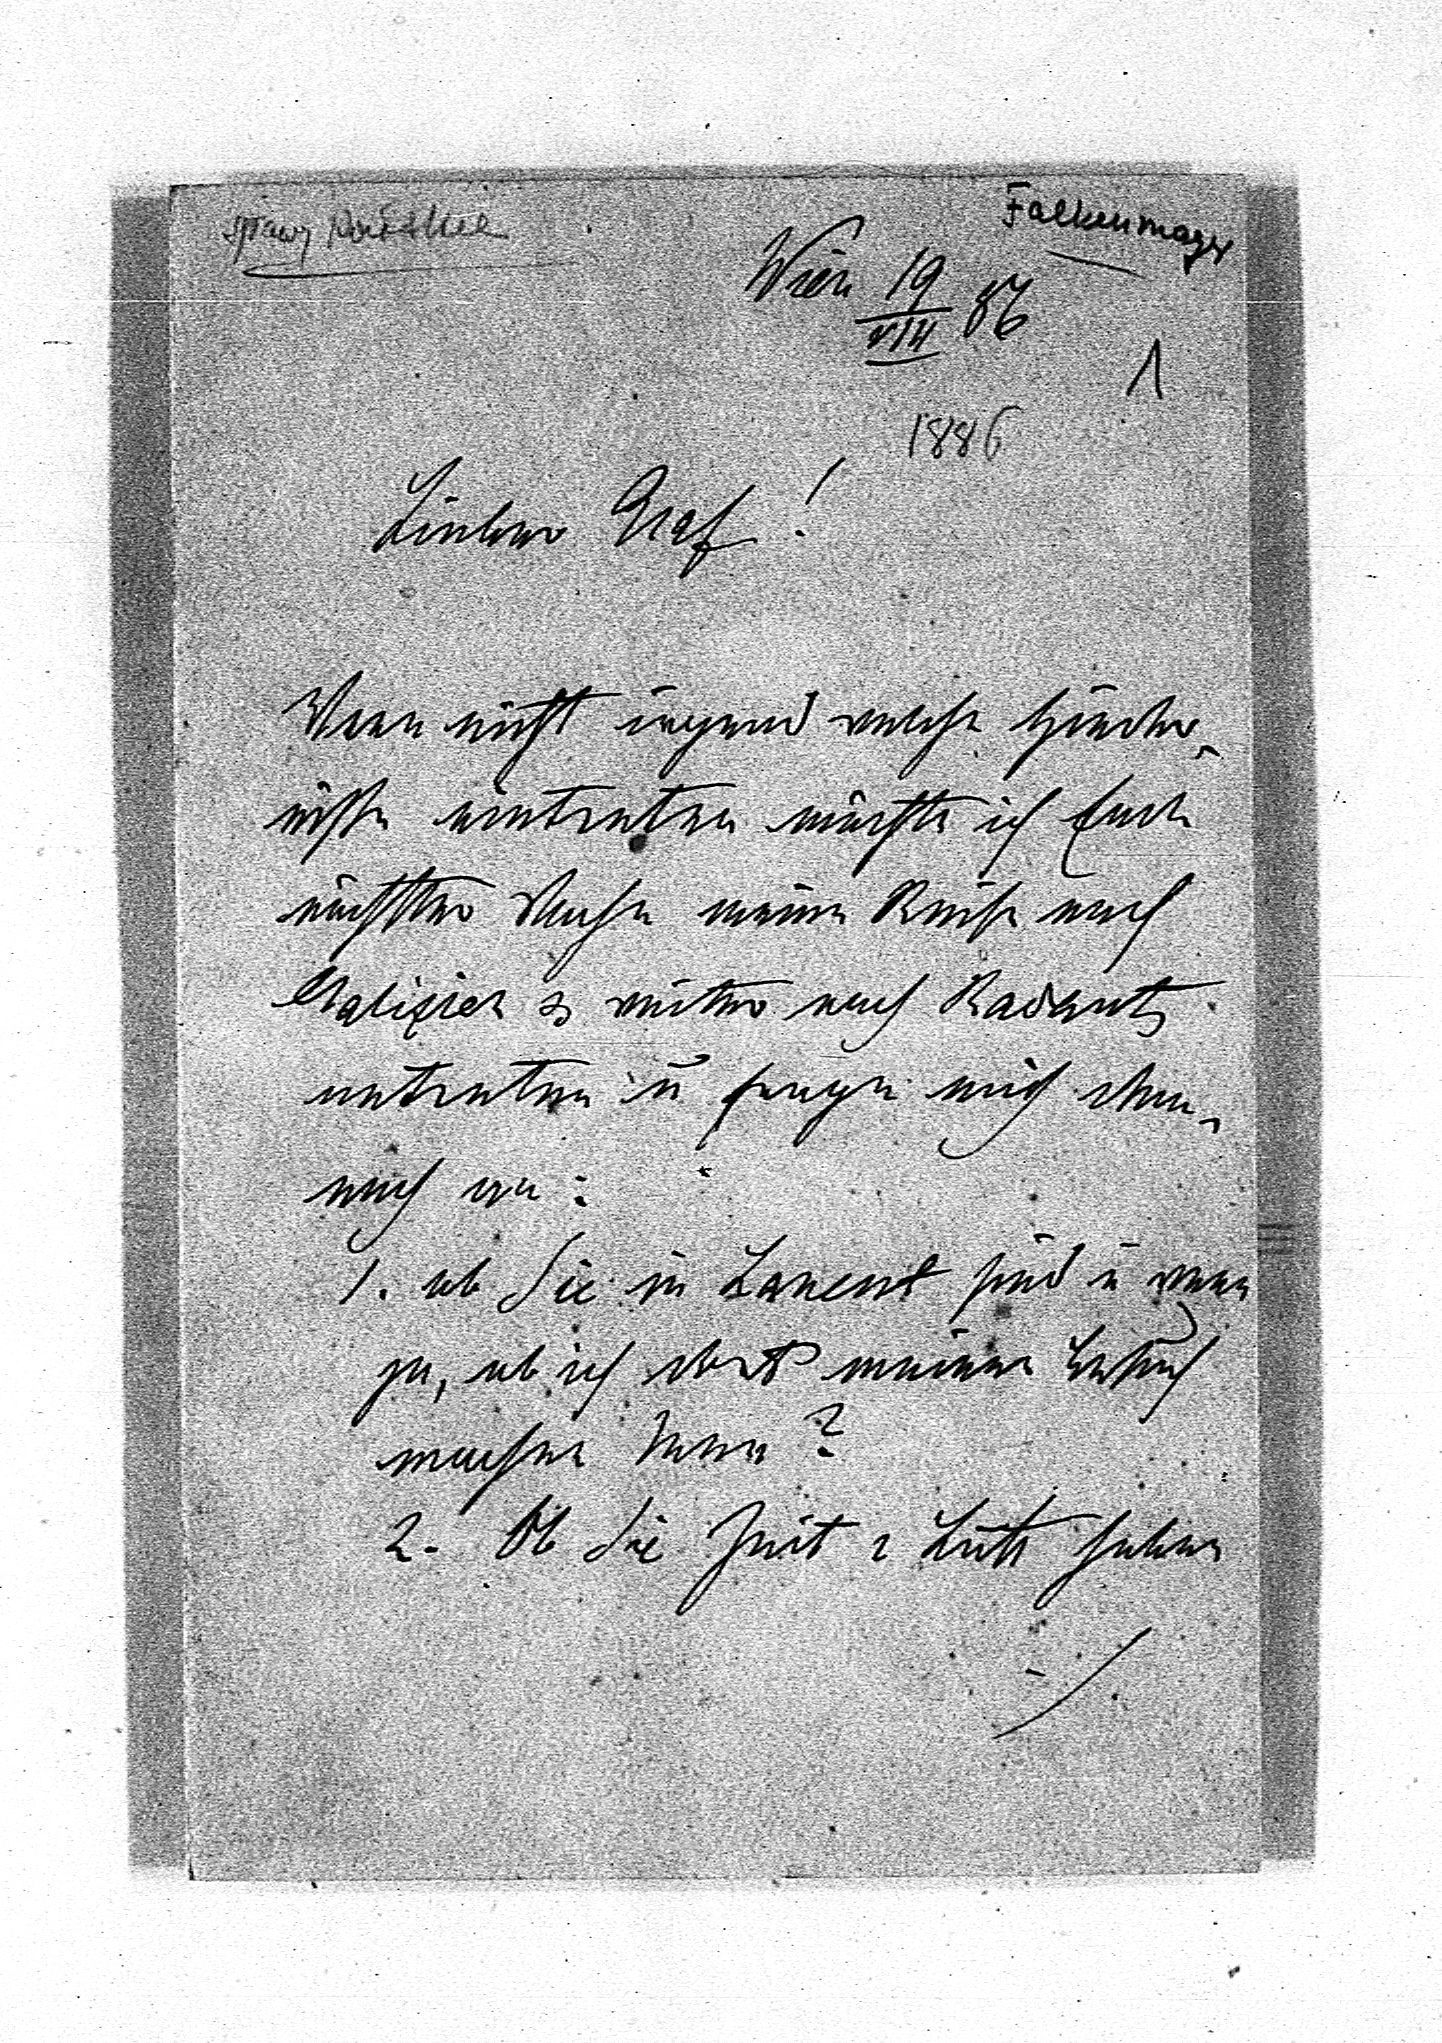 sprawy końskie
Falkenmayer
Wien 19/VIII 86
1
1886
Lieber Graf!
Wenn nicht irgend welche Hinder-
nisse eintreten möchte ich Ende
nächster Woche meine Reise nach
Galizien & weiter nach Radautz
antreten u frage mich dem-
nach an:
1. ob Sie in Lancut sind u wenn
ja, ob ich dort meinen Besuch
machen kann?
2. Ob Sie Zeit & Lust haben